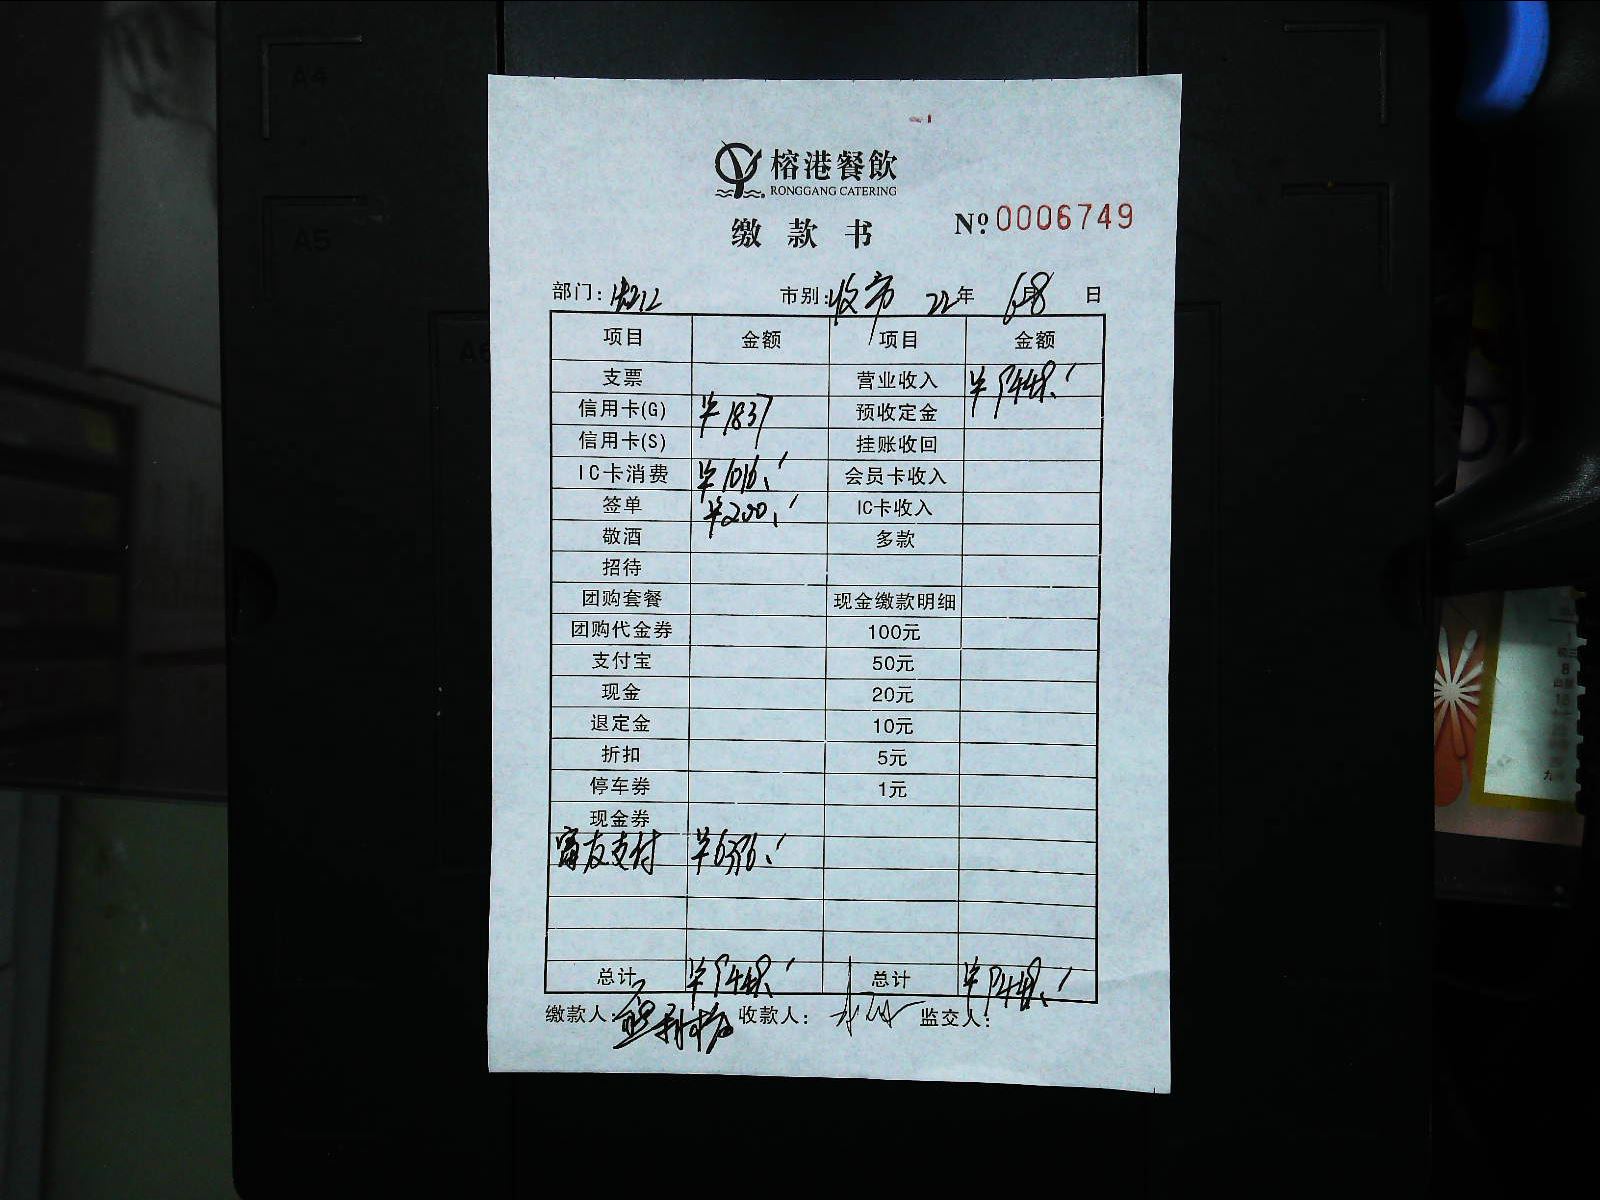 A4
A5
A6
榕港餐飲
RONGGANG CATERING
缴款书
Nº 0006749
部门:
市别: 收市 22年 6月8日
项目 金额 项目 金额
支票 营业收入 ¥9448.
信用卡(G) ¥1837 预收定金
信用卡(S) 挂账收回
IC卡消费 ¥1016. 会员卡收入
签单 ¥200. IC卡收入
敬酒 多款
招待
团购套餐 现金缴款明细
团购代金券 100元
支付宝 50元
现金 20元
退定金 10元
折扣 5元
停车券 1元
现金券
富友支付
总计 ¥9448. 总计 ¥9448.
缴款人: 收款人: 监交人: